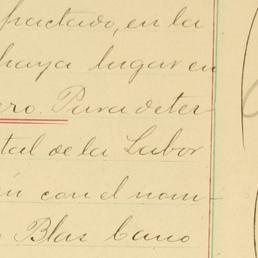 pactado, en la
haya lugar en
ero. Para deter
tal de la Labor
ón con el nom-
Blas Cano